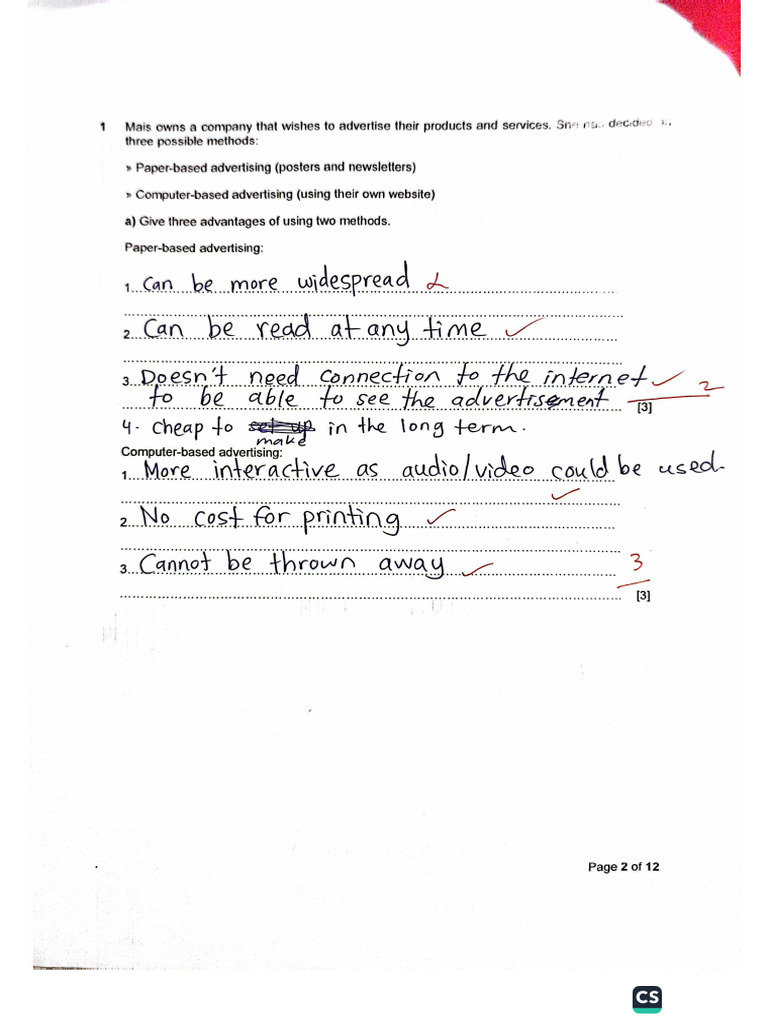 1 Mais owns a company that wishes to advertise their products and services. She has decided
three possible methods:
» Paper-based advertising (posters and newsletters)
» Computer-based advertising (using their own website)
a) Give three advantages of using two methods.
Paper-based advertising:
1 Can be more widespread
2 Can be read at any time ✓
3 Doesn't need connection to the internet ✓ 2
to be able to see the advertisement [3]
4. cheap to make in the long term.
Computer-based advertising:
1 More interactive as audio/video could be used.
✓
2 No cost for printing ✓
3 Cannot be thrown away ✓ 3
[3]
Page 2 of 12
CS